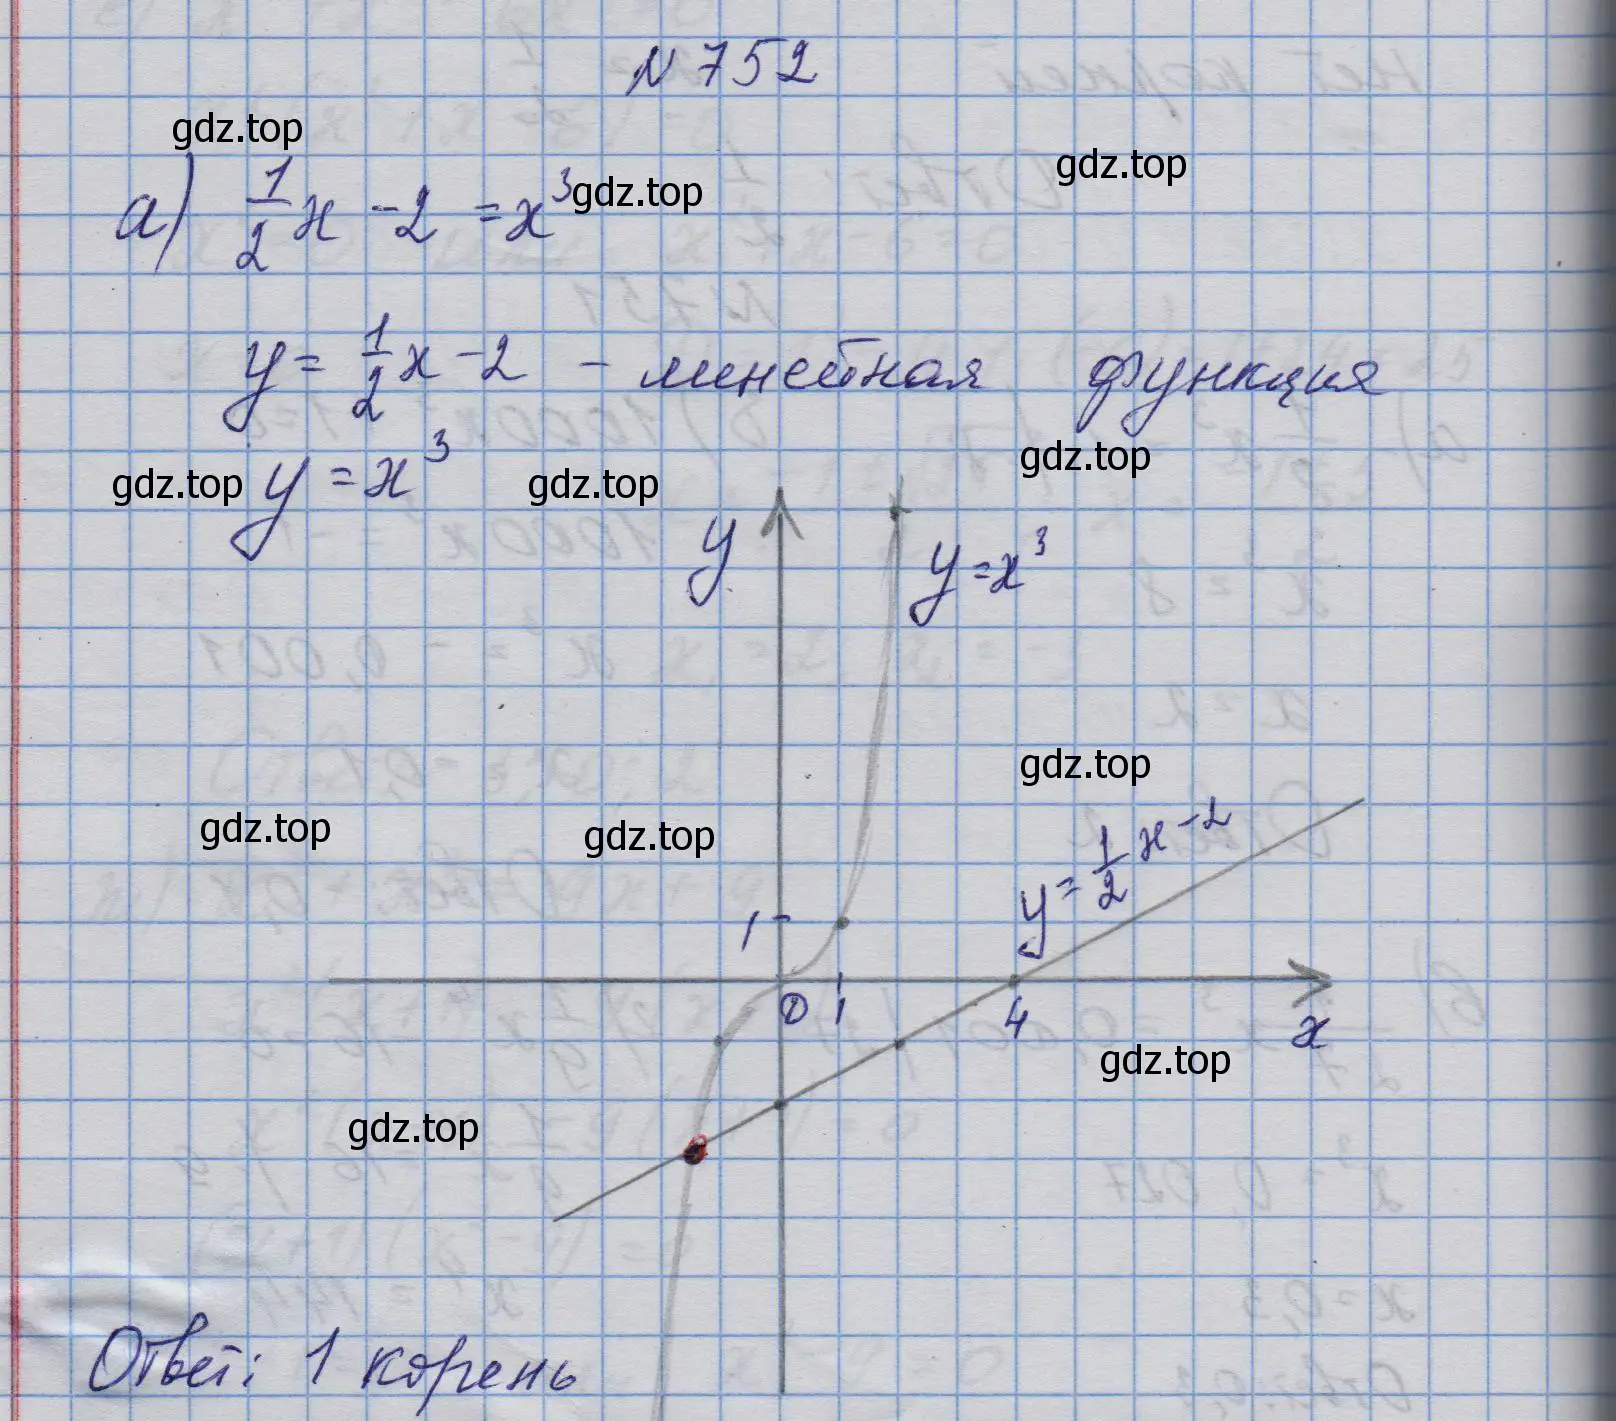 N 752
gdz.top
gdz.top
а) 1/2 x - 2 = x³ gdz.top
y = 1/2 x - 2 - линейная функция
gdz.top
gdz.top y = x³ gdz.top
y
y = x³
gdz.top
gdz.top gdz.top
y = 1/2 x - 2
1
0 1 4 x
gdz.top
gdz.top
Ответ: 1 корень